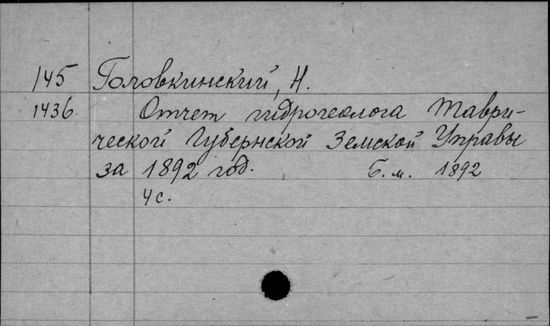 145 Головкинский, Н.
1436. Отчет гидрогеолога Таври-
ческой Губернской Земской Управы
за 1892 год. Б. м. 1892
4 с.